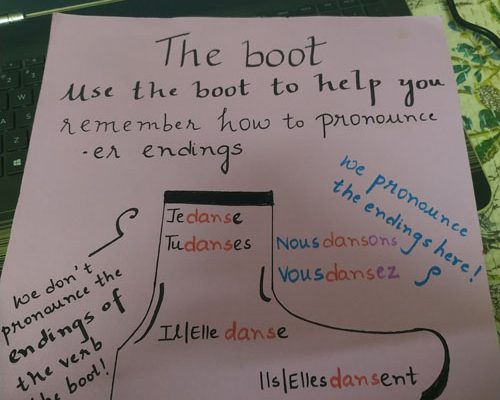 The boot
Use the boot to help you
remember how to pronounce
-er endings
we pronounce
the endings here!
Je danse
Tu danses
Nous dansons
Vous dansez
we don't
pronounce the
endings of
the verb
the boot!
Il/Elle danse
Ils/Elles dansent